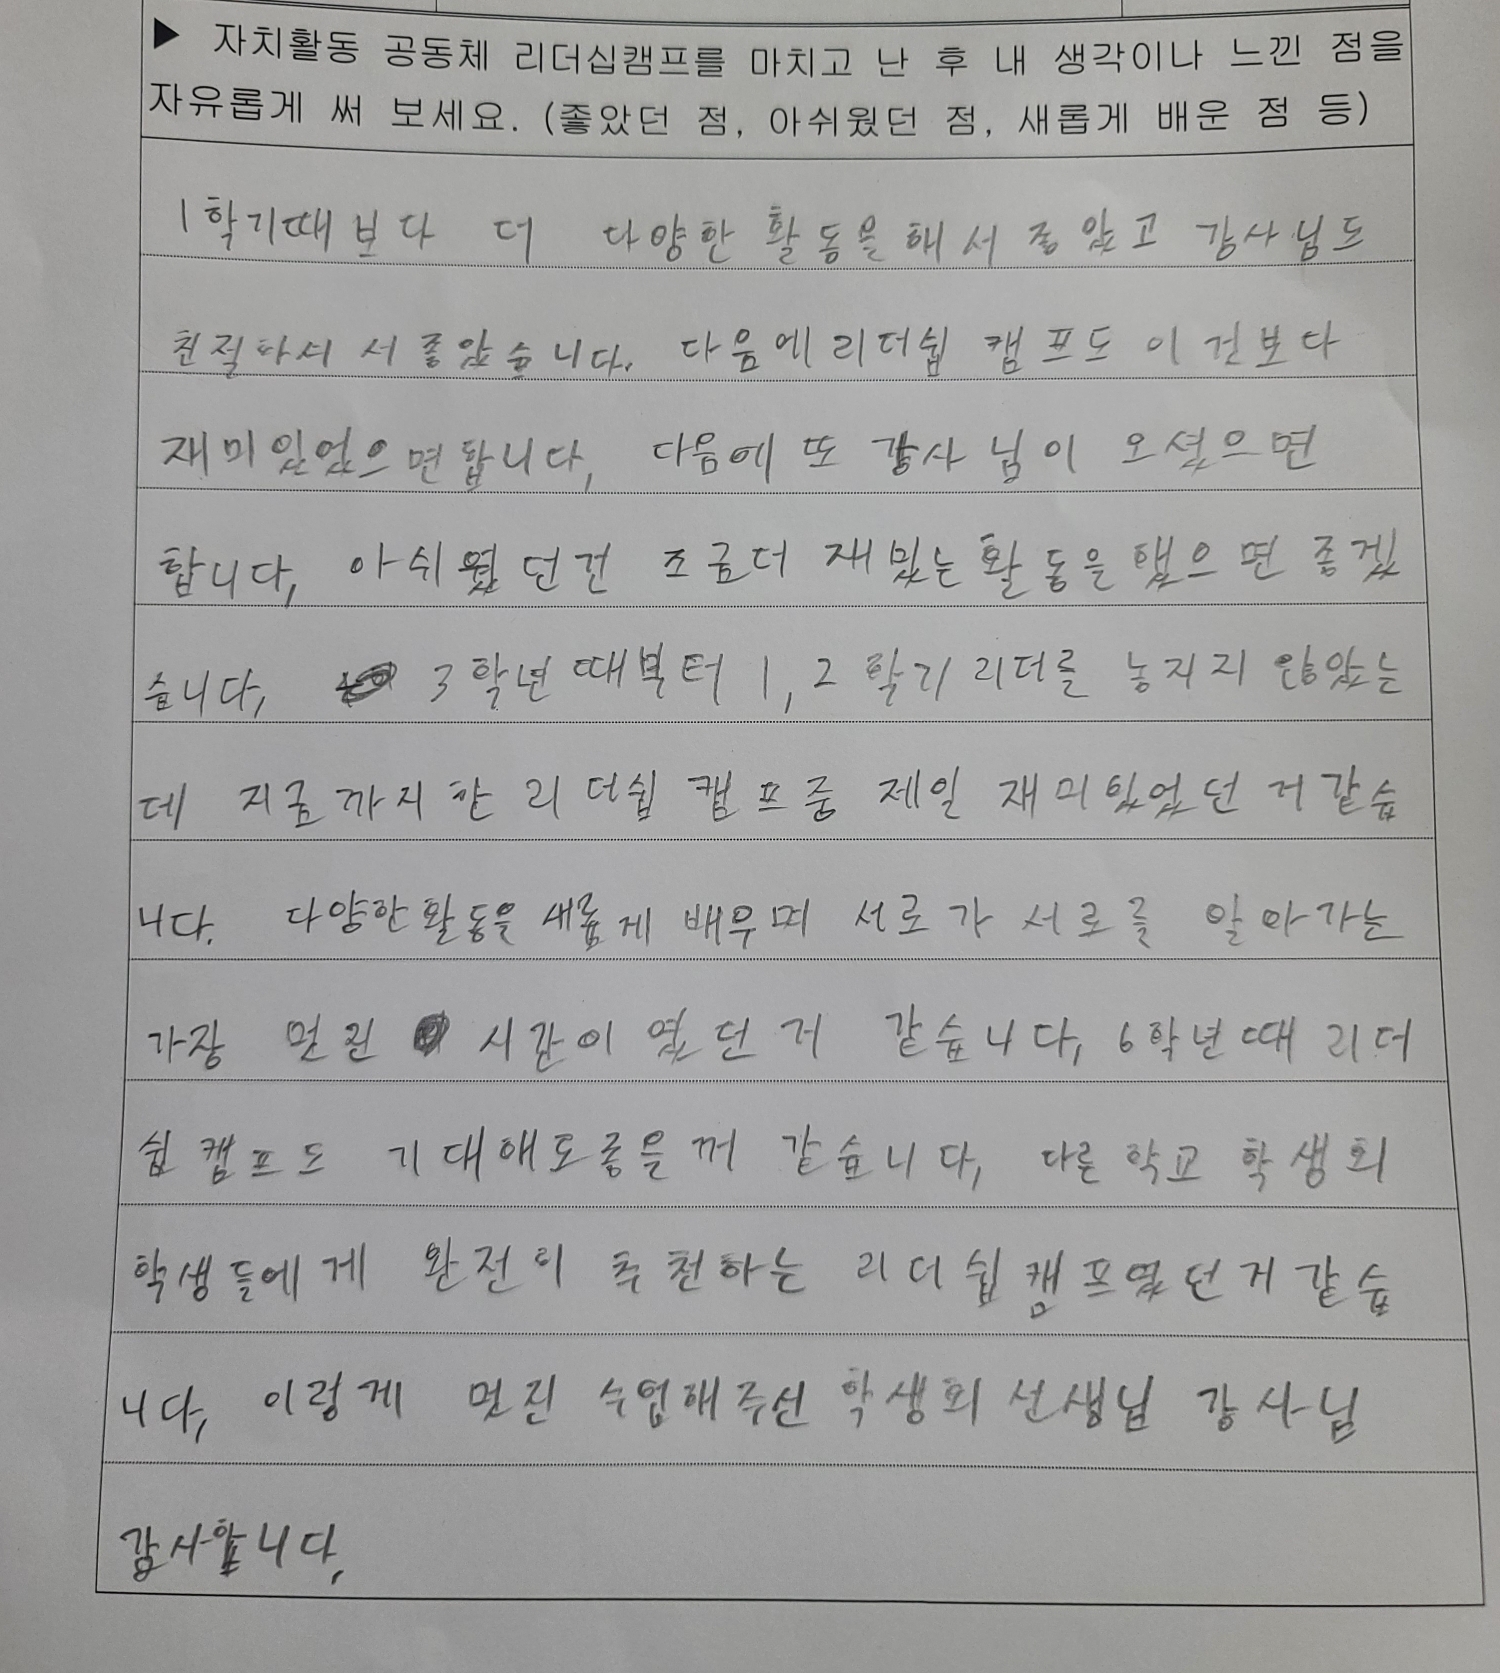 ▶ 자치활동 공동체 리더십캠프를 마치고 난 후 내 생각이나 느낀 점을
자유롭게 써 보세요. (좋았던 점, 아쉬웠던 점, 새롭게 배운 점 등)
1학기때보다 더 다양한 활동을해서 좋았고 강사님도
친절하셔서 좋았습니다. 다음에 리더쉽 캠프도 이건보다
재미있었으면합니다, 다음에 또 강사님이 오셨으면
합니다, 아쉬웠던건 조금더 재밌는 활동을했으면 좋겠
습니다, 3학년때부터 1,2학기 리더를 놓지지 않았는
데 지금까지한 리더쉽 캠프중 제일 재미있었던 거같습
니다. 다양한활동을 새롭게 배우며 서로가 서로를 알아가는
가장 멋진 시간이였던거 같습니다, 6학년때 리더
쉽캠프도 기대해도좋을꺼 같습니다, 다른학교 학생회
학생들에게 완전히 추천하는 리더쉽캠프였던거같습
니다, 이렇게 멋진 수업해주신 학생회선생님 강사님
감사합니다,